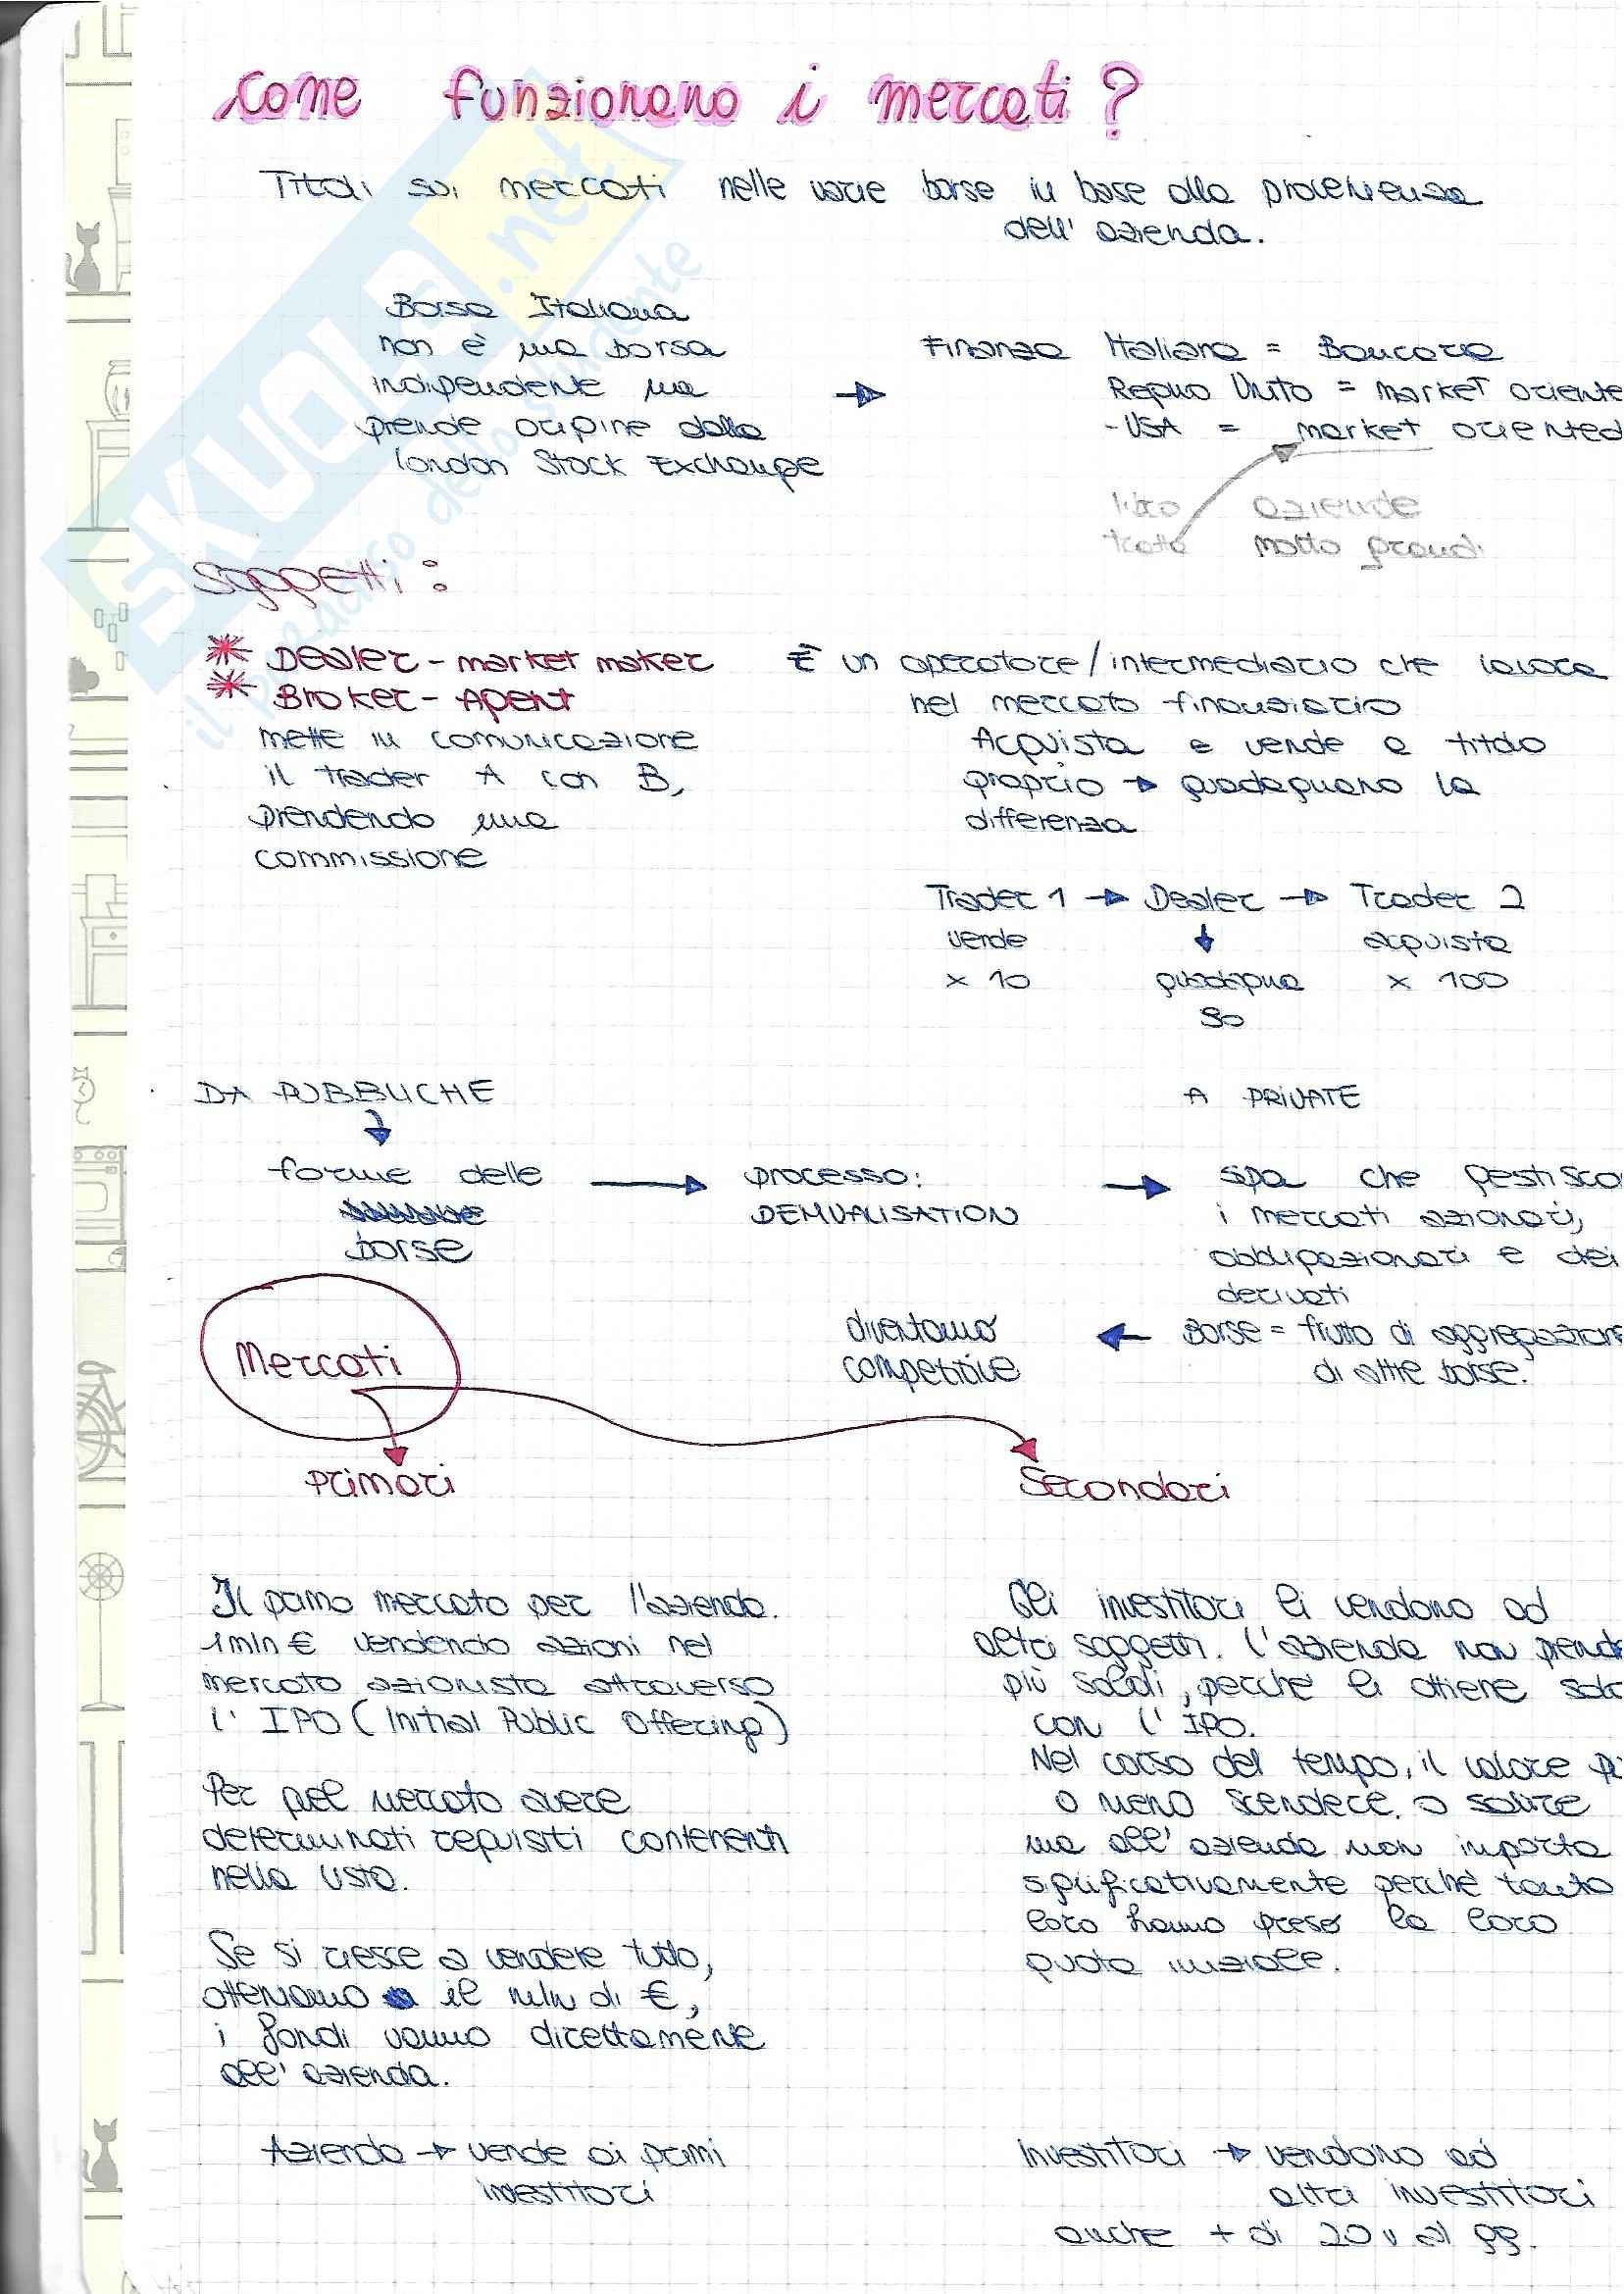 Come funzionano i mercati?
Titoli sui mercati nelle varie borse in base alla provenienza
dell'azienda.
Borsa Italiana
non è una borsa
indipendente ma
prende origine dalla
London Stock Exchange
→
Finanza Italiana = Bancaria
Regno Unito = market oriente
- USA = market oriented
loro aziende
tratta molto grandi
Soggetti:
* Dealer - market maker
* Broker - Agent
mette in comunicazione
il trader A con B,
prendendo una
commissione
È un operatore/intermediario che lavora
nel mercato finanziario
Acquista e vende a titolo
proprio → guadagnano la
differenza
Trader 1 → Dealer → Trader 2
vende ↓ acquista
x 10 guadagna x 100
90
DA PUBBLICHE
A PRIVATE
forme delle
borse
→ processo:
DEMUALISATION
→ spa che gestisco
i mercati azionari,
obbligazionari e dei
derivati
diventano
competitive
← Borse = frutto di aggregazione
di altre borse.
Mercati
Primari
Secondari
Il primo mercato per l'azienda.
1 mln € vendendo azioni nel
mercato azionista attraverso
l'IPO (Initial Public Offering)
Per quel mercato avere
determinati requisiti contenenti
nella lista.
Se si riesce a vendere tutto,
otteniamo il mln di €,
i fondi vanno direttamente
all'azienda.
Azienda → vende ai primi
investitori
Gli investitori li vendono ad
altri soggetti. L'azienda non prende
più soldi, perché li ottiene solo
con l'IPO.
Nel corso del tempo, il valore più
o meno scendere o salire
ma all'azienda non importa
significativamente perché tanto
loro hanno preso la loro
quota iniziale.
Investitori → vendono ad
altri investitori
anche + di 20 v al gg.
SKUOLA.net
il paradiso dello studente